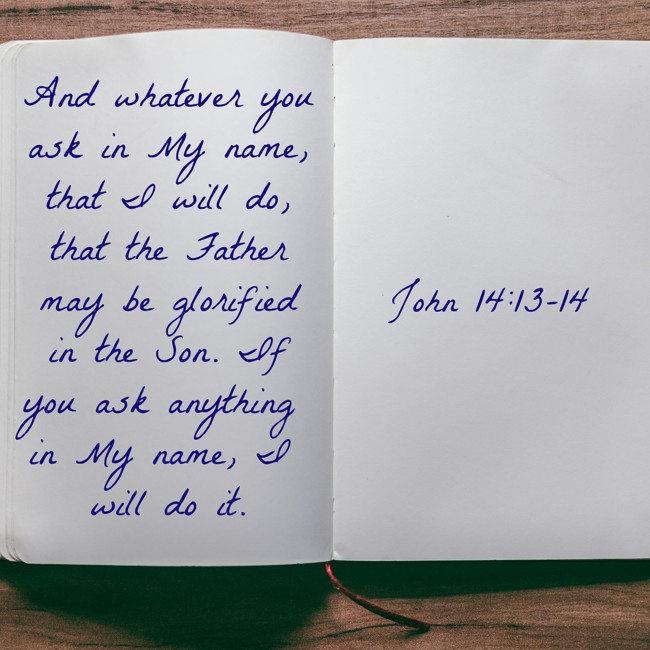 And whatever you
ask in My name,
that I will do,
that the Father
may be glorified
in the Son. If
you ask anything
in My name, I
will do it.
John 14:13-14